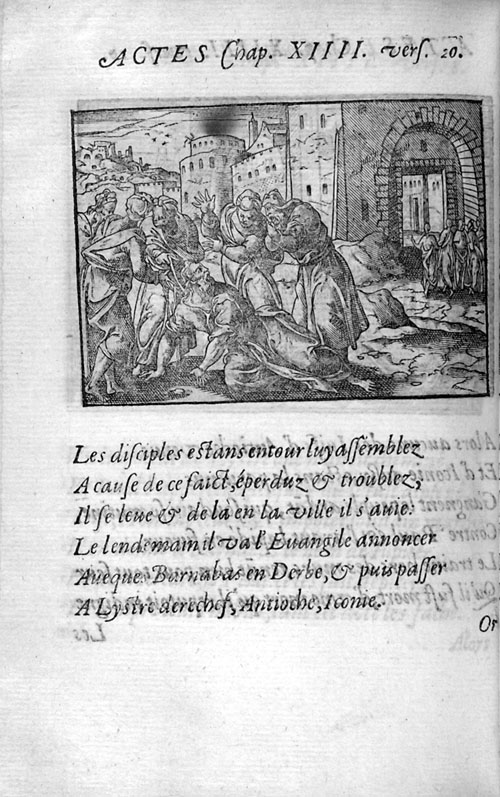 ACTES Chap. XIIII. vers. 20.
Les disciples estans entour luy assemblez
A cause de ce faict, éperduz & troublez,
Il se leue & de là en la ville il s'auie:
Le lendemain il va l'Euangile annoncer
Aueque Barnabas en Derbe, & puis passer
A Lystre derechef, Antioche, Iconie.
Or